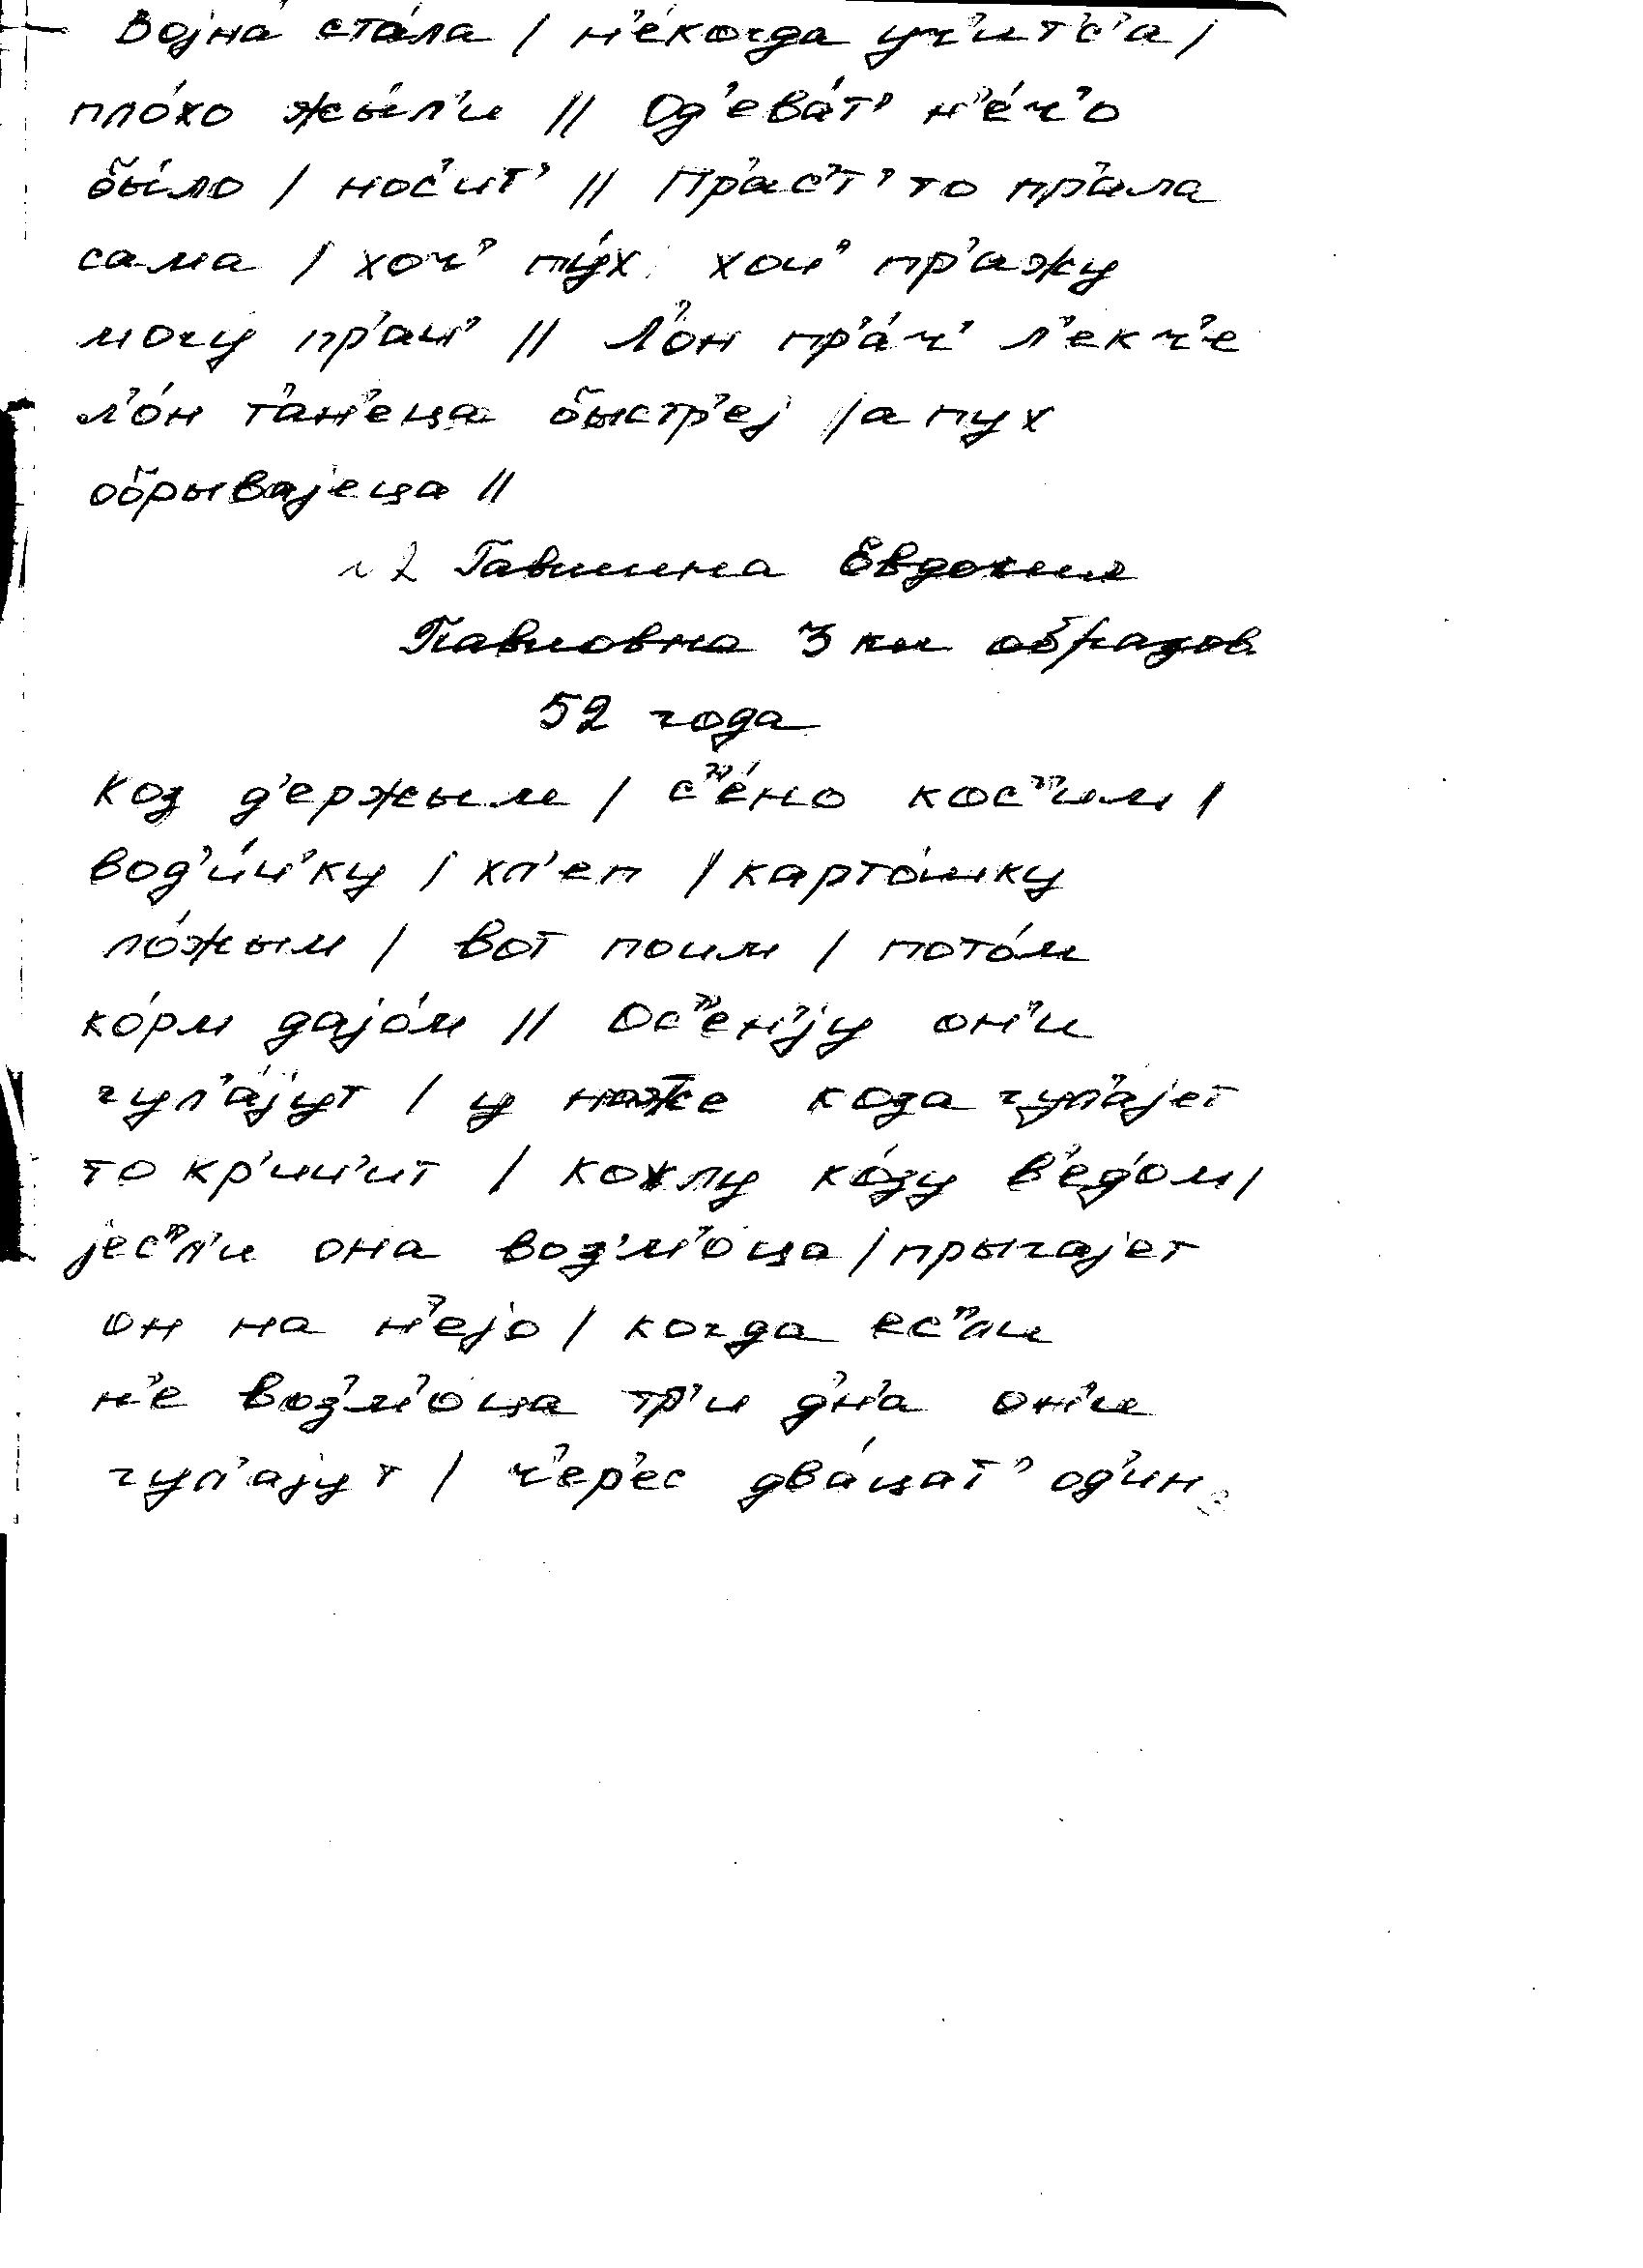 Војна́ ста́ла / н'е́когда уч'ит'с'а /
пло́хо жы́л'и // Од'ева́т' н'е́ч'о
бы́ло / нос'ит' // Пр'ас'т' то пр'ала
сама / хоч' пу́х хоч' пр'ажу
могу пр'ач' // Л'он пр'а́ч' л'екч'е
л'о́н т'ан'еца быстр'еј / а пух
обрывајеца //
Гавшина Евдокия
Павловна 3 кл образов.
52 года
Коз д'ержым / с"е́но кос"им /
вод'и́ч'ку / хл'еп / карто́шку
ло́жым / вот поим / пото́м
ко́рм дајо́м // Ос"ен'ју он'и
гул'а́јут / у коза гул'ајет
то кр'ич'ит / ко́зу в'ед'ом /
јес"л'и она воз'м'оца / прыгајет
он на н'ејо / когда ес"ли
н'е воз'м'оца тр'и д'н'а он'и
гул'ајут / ч'ер'ес два́цат' од'ин